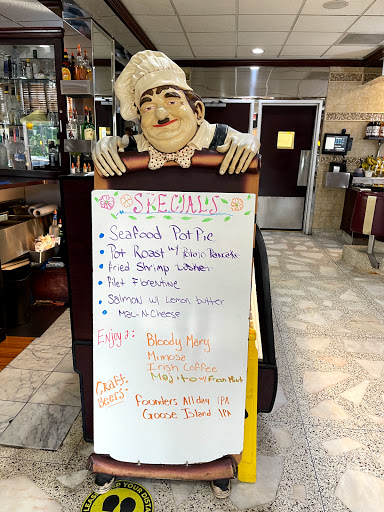 SPECIALS
Seafood Pot Pie
Pot Roast w/ Potato Pancake
Fried Shrimp
Filet Florentine
Salmon w/ Lemon butter
Mac-N-Cheese
Enjoy a:
Bloody Mary
Mimosa
Irish Coffee
Mojito w/ Fresh Mint
Craft Beers:
Founders All day IPA
Goose Island IPA
KEEP YOUR DISTANCE